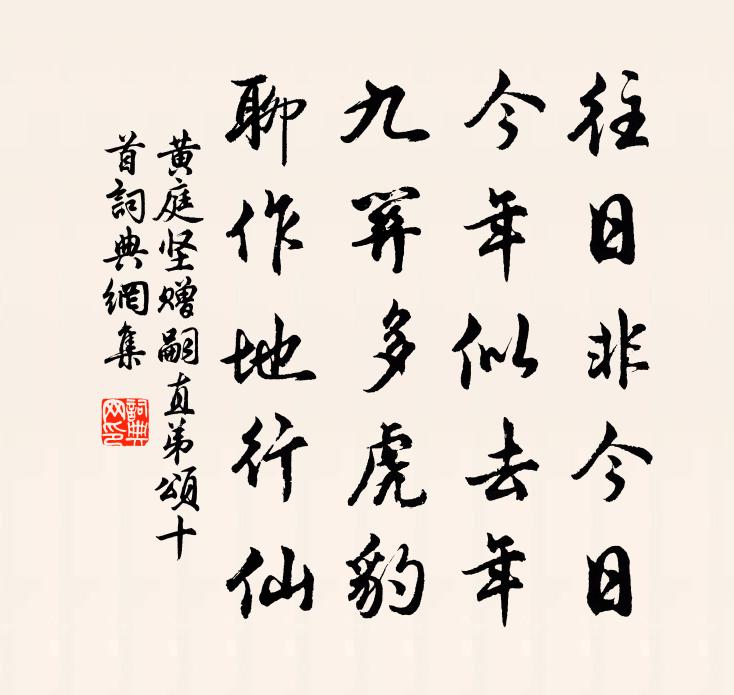 往日非今日
今年似去年
九關多虎豹
聊作地行仙
黄庭坚贈嗣直弟頌十
首詞典網集
詞典
网印